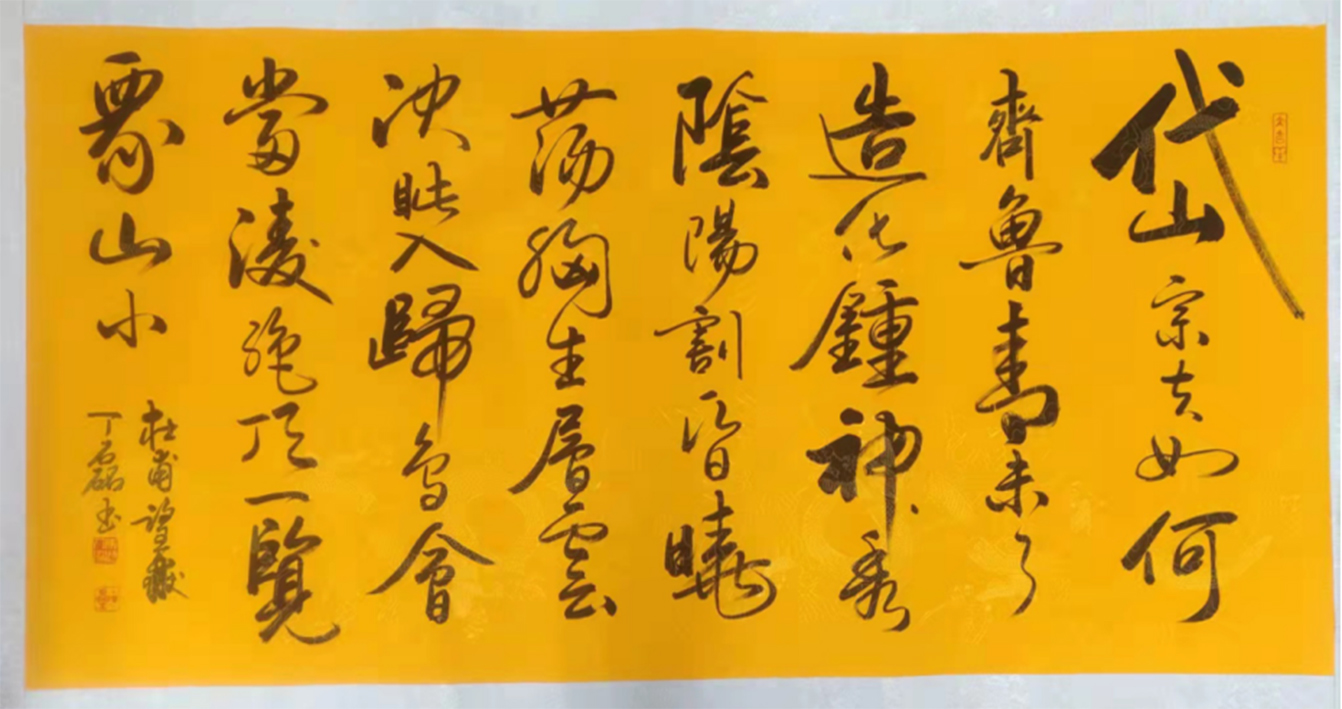 岱宗夫如何
齊魯青未了
造化鍾神秀
陰陽割昏曉
荡胸生層雲
決眦入歸鳥會
當淩絕頂一覽
眾山小
杜甫望嶽
丁石書